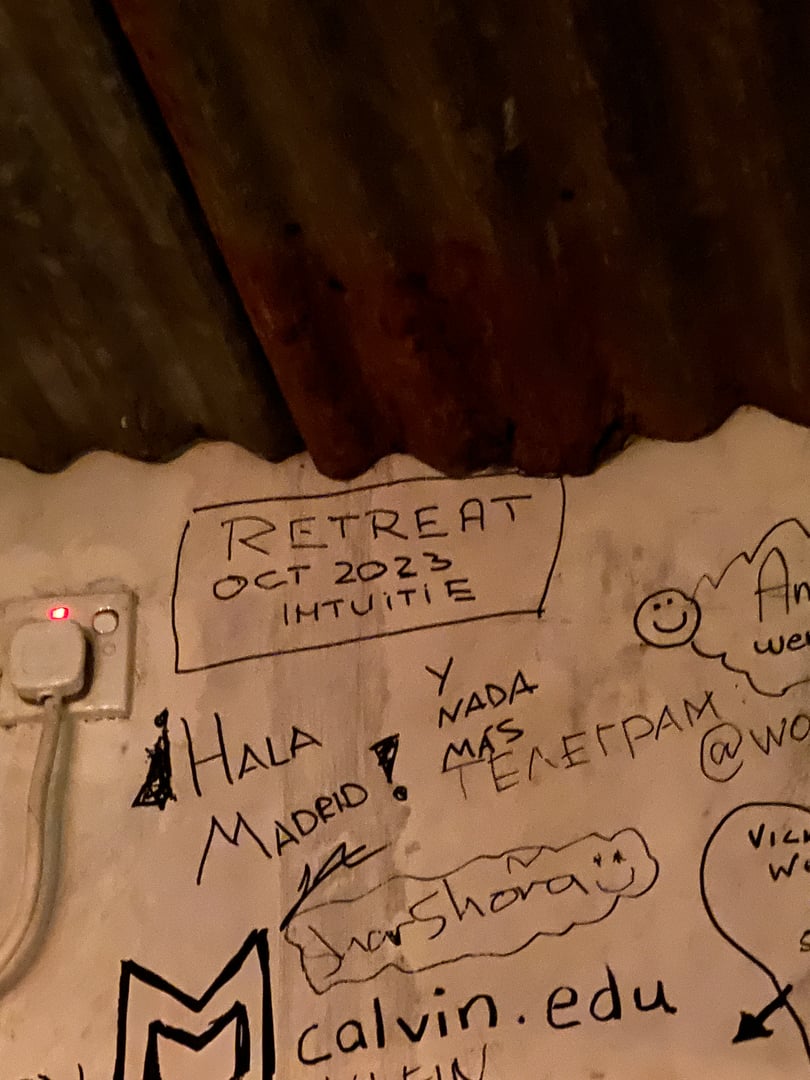 RETREAT
OCT 2023
INTUITIE
An
we
¡HALA
MADRID!
Y
NADA
MÁS
ТЕЛЕГРАМ
@WO
VIC
W
Shora
M
calvin.edu